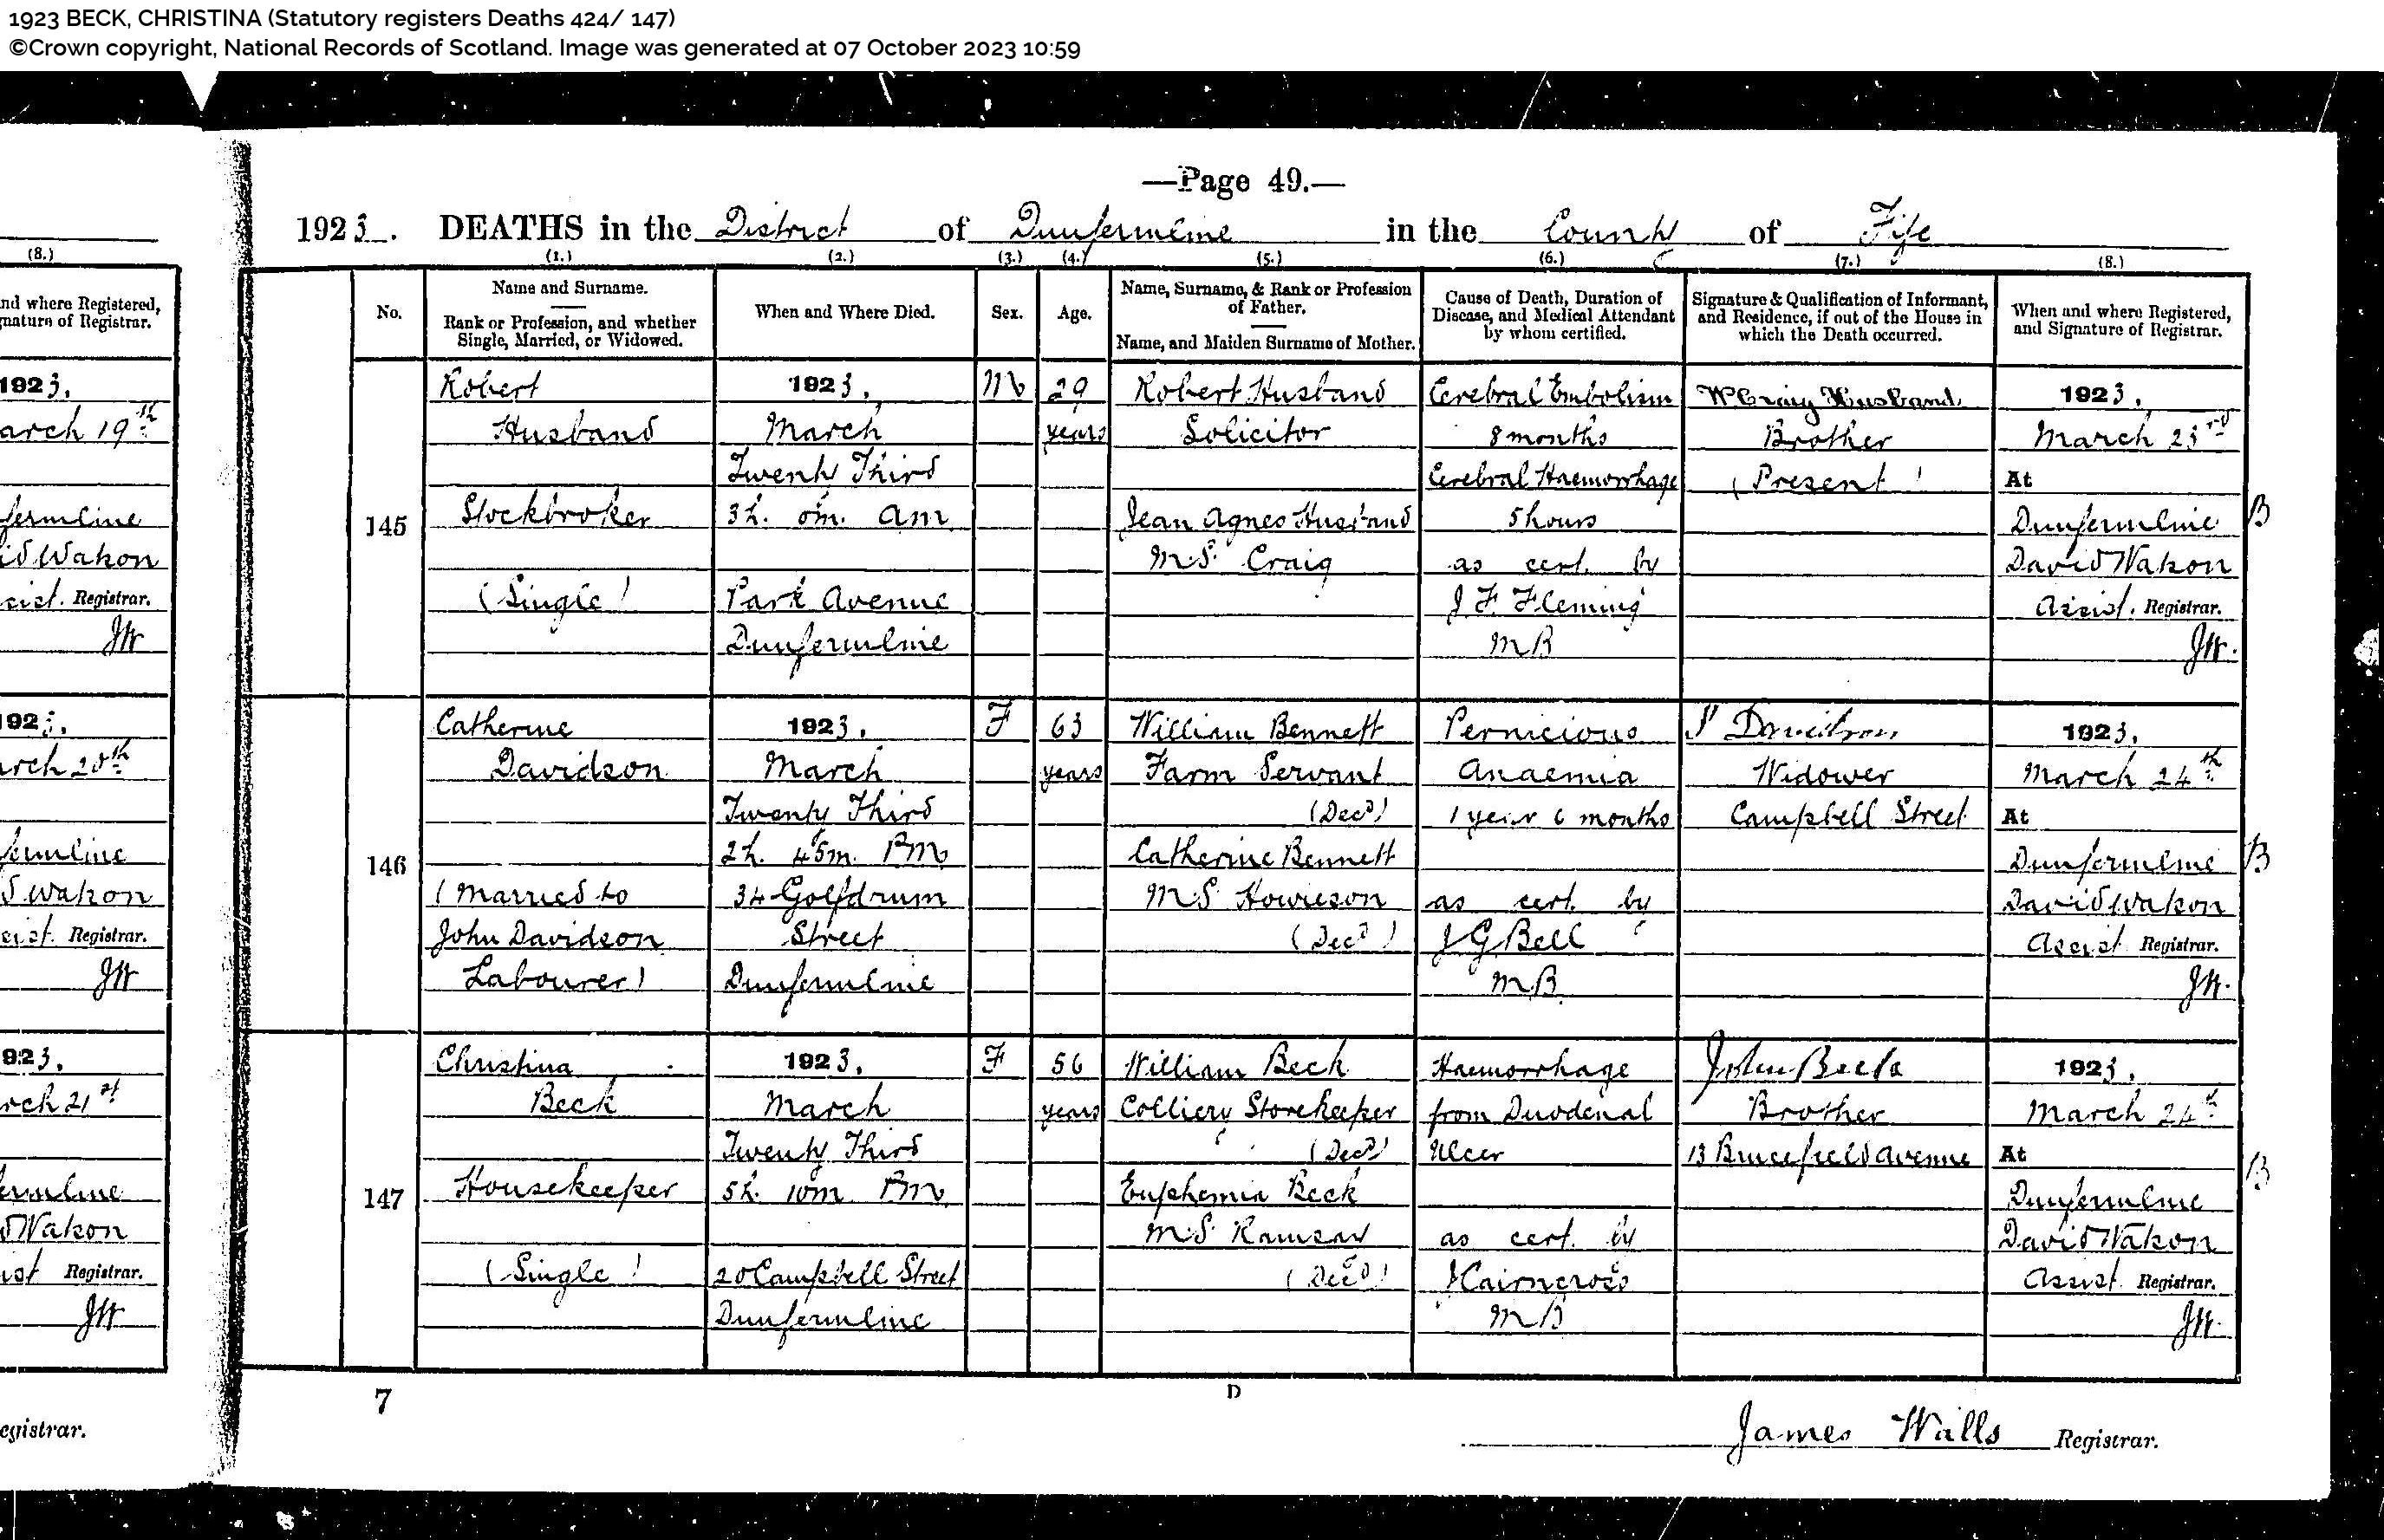 1923 BECK, CHRISTINA (Statutory registers Deaths 424/ 147)
©Crown copyright, National Records of Scotland. Image was generated at 07 October 2023 10:59
—Page 49.—
1923. DEATHS in the District of Dunfermline in the County of Fife
(8.)
nd where Registered,
gnature of Registrar.
1923.
arch 19th
fermline
id Watson
sist. Registrar.
JW
1923.
arch 20th
fermline
d Watson
sist. Registrar.
JW
923.
rch 21st
ermline
d Watson
ist Registrar.
JW
egistrar.
(1.) (2.) (3.) (4.) (5.) (6.) (7.) (8.)
No.
Name and Surname.
Rank or Profession, and whether
Single, Married, or Widowed.
When and Where Died.
Sex.
Age.
Name, Surname, & Rank or Profession
of Father.
Name, and Maiden Surname of Mother.
Cause of Death, Duration of
Disease, and Medical Attendant
by whom certified.
Signature & Qualification of Informant,
and Residence, if out of the House in
which the Death occurred.
When and where Registered,
and Signature of Registrar.
145
Robert
Husband
Stockbroker
(Single)
1923.
March
Twenty Third
3h. 0m. am
Park Avenue
Dunfermline
M
29
years
Robert Husband
Solicitor
Jean Agnes Husband
M.S. Craig
Cerebral Embolism
8 months
Cerebral Haemorrhage
5 hours
as cert. by
J F Fleming
MB
Wm Craig Husband
Brother
(Present)
1923.
March 23rd
At
Dunfermline
David Watson
Assist. Registrar.
JW.
B
146
Catherine
Davidson
(Married to
John Davidson
Labourer)
1923.
March
Twenty Third
2h. 45m. PM
34 Golfdrum
Street
Dunfermline
F
63
years
William Bennett
Farm Servant
(Decd)
Catherine Bennett
M.S Howieson
(Decd)
Pernicious
Anaemia
1 year 6 months
as cert. by
J G Bell
M.B.
J Davidson
Widower
Campbell Street
1923.
March 24th
At
Dunfermline
David Watson
Assist Registrar.
JW.
B
147
Christina
Beck
Housekeeper
(Single)
1923.
March
Twenty Third
5h. 10m. PM
20 Campbell Street
Dunfermline
F
56
years
William Beck
Colliery Storekeeper
(Decd)
Euphemia Beck
M.S. Ramsay
(Decd)
Haemorrhage
from Duodenal
Ulcer
as cert. by
J Cairncross
MB
John Beck
Brother
13 Brucefield Avenue
1923.
March 24th
At
Dunfermline
David Watson
Assist. Registrar.
JW.
B
7
D
James Walls Registrar.